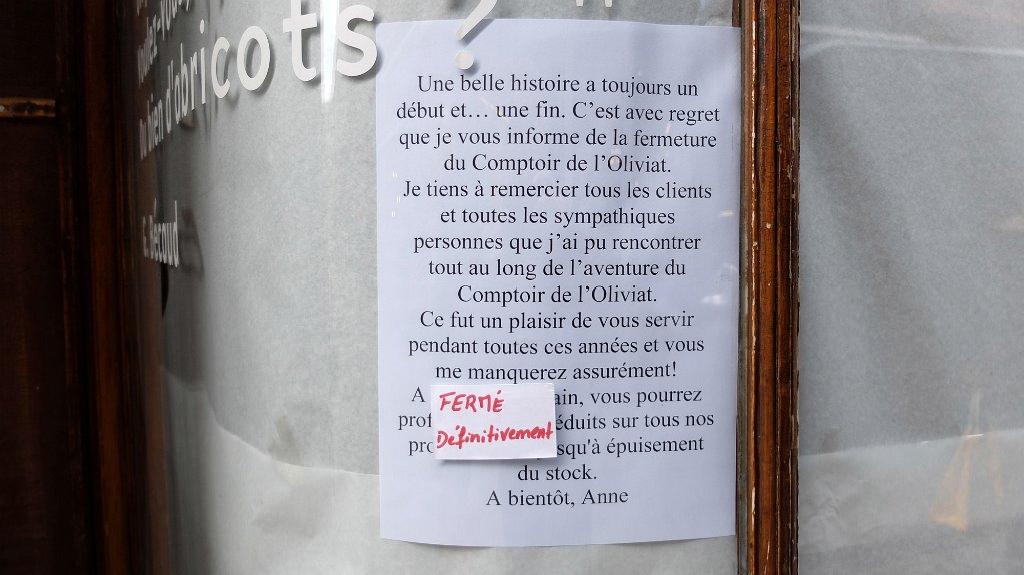 d'abricots ?
Bécaud
Une belle histoire a toujours un
début et… une fin. C'est avec regret
que je vous informe de la fermeture
du Comptoir de l'Oliviat.
Je tiens à remercier tous les clients
et toutes les sympathiques
personnes que j'ai pu rencontrer
tout au long de l'aventure du
Comptoir de l'Oliviat.
Ce fut un plaisir de vous servir
pendant toutes ces années et vous
me manquerez assurément!
A ain, vous pourrez
prof éduits sur tous nos
pro squ'à épuisement
du stock.
A bientôt, Anne
FERMÉ
Définitivement